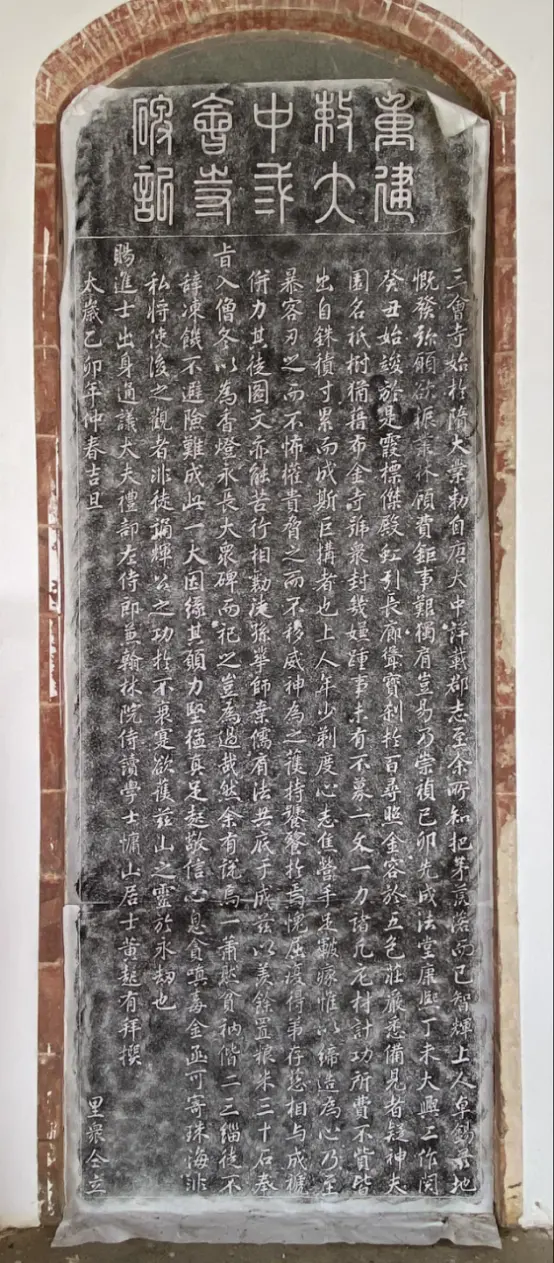 重建
敕大
中三
會寺
碑記
三會寺始於隋大業勅自唐大中詳載郡志至余所知把茅蕭落而已智輝上人卓錫茲地
慨發弥願欲振叢林顧費鉅事艱獨肩豈易乃崇禎己卯先成法堂康熙丁未大興工作閱
癸丑始竣於是霞標傑殿虹引長廊聳寶剎於百尋照金容於五色莊嚴悉備見者疑神夫
園名祇樹猶藉布金寺號眾封幾媲踵事未有不募一文一力諸凡庀材計功所費不貲皆
出自銖積寸累而成斯巨搆者也上人年少剃度心志焦營手足皸瘃惟以締造為心乃至
暴客刃之而不怖權貴脅之而不移威神為之護持饕餮於焉愧屈疲得事存慈相與成褫
併力其徒圓文亦能苦行相勷徒孫舉師棄儒有法共底于成茲以羨餘置粮米三十石奉
旨入僧冬以為香燈永長大眾碑而祀之豈為過哉然余有說焉一蕭然貧衲偕二三緇徒不
辭凍餓不避險難成此一大因緣其願力堅猛真足起敬信心息貪嗔毒金函可寄珠海非
私將使後之觀者非徒誦輝公之功於不衰寔欲護茲山之靈於永劫也
賜進士出身通議大夫禮部左侍郎兼翰林院侍讀學士慵山居士黃起有拜撰
太歲乙卯年仲春吉旦 里眾仝立